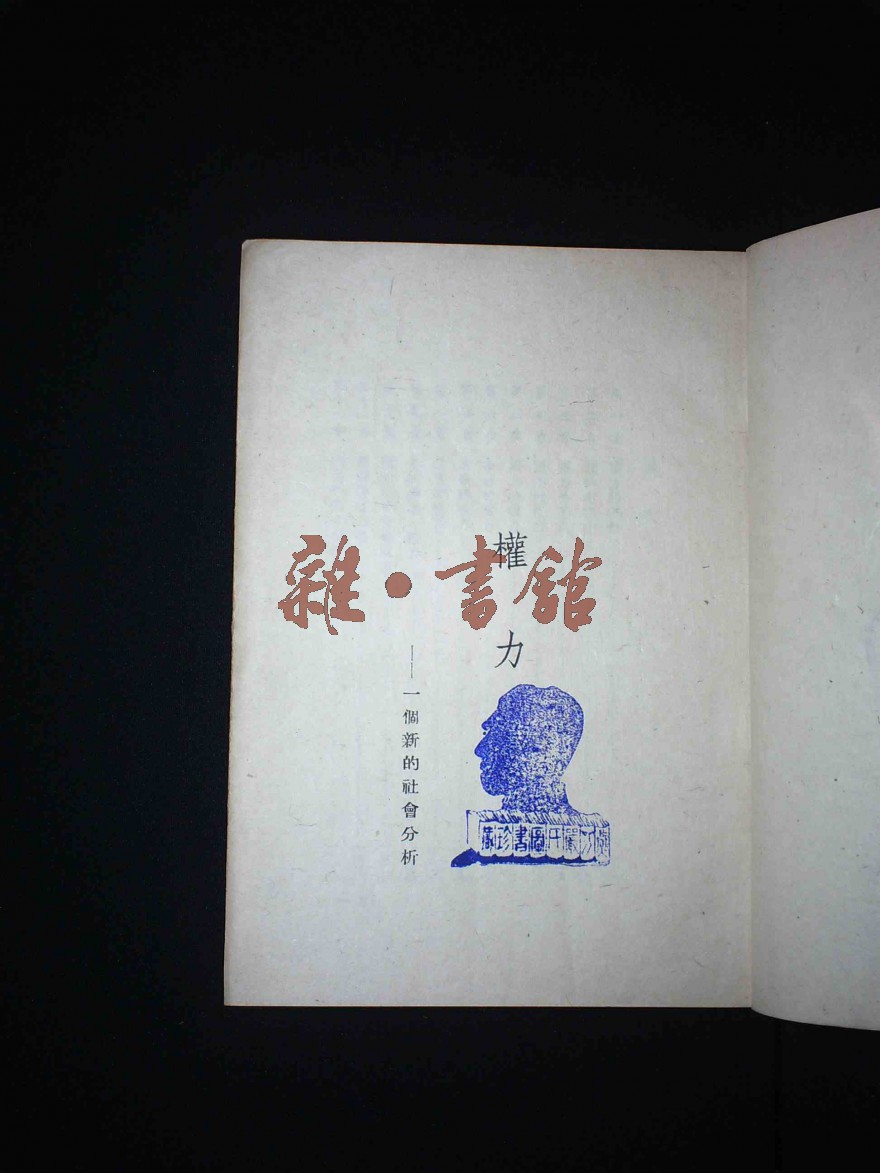 權力
——一個新的社會分析
雜·書館
書珍藏